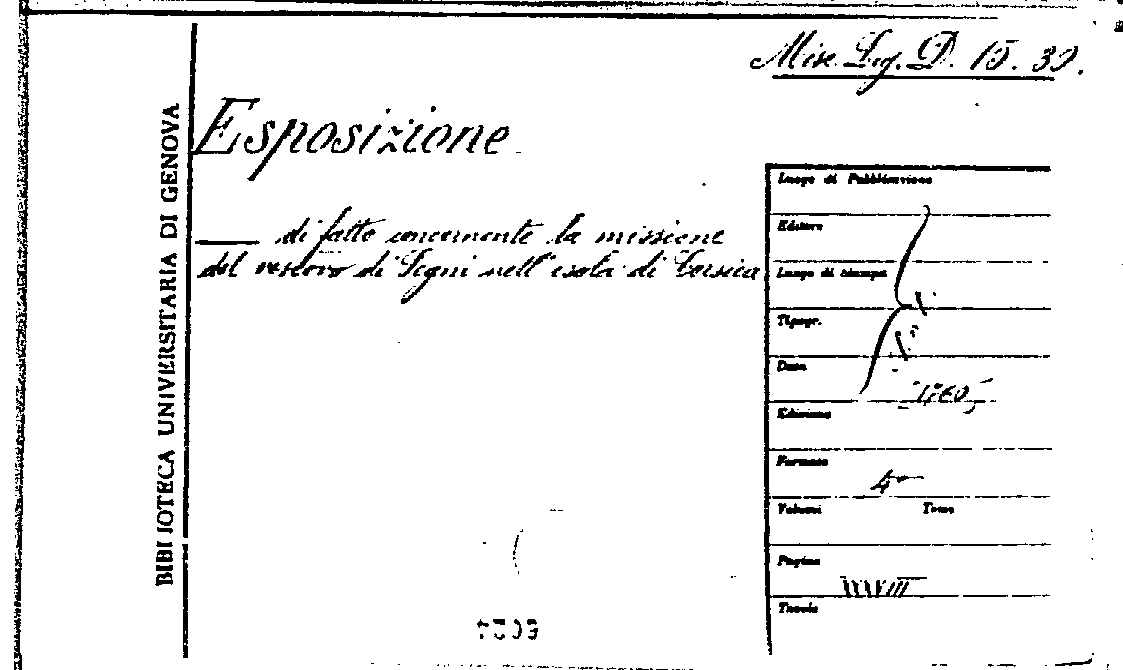 Misc. Lig. D. 15. 39.
BIBLIOTECA UNIVERSITARIA DI GENOVA
Esposizione
di fatto concernente la missione
del vescovo di Segni nell'isola di Corsica
Luogo di Pubblicazione
Editore
Luogo di stampa
Tipogr.
Data
1760
Edizione
Formato 4°
Volumi Tomo
Pagine
Tavole